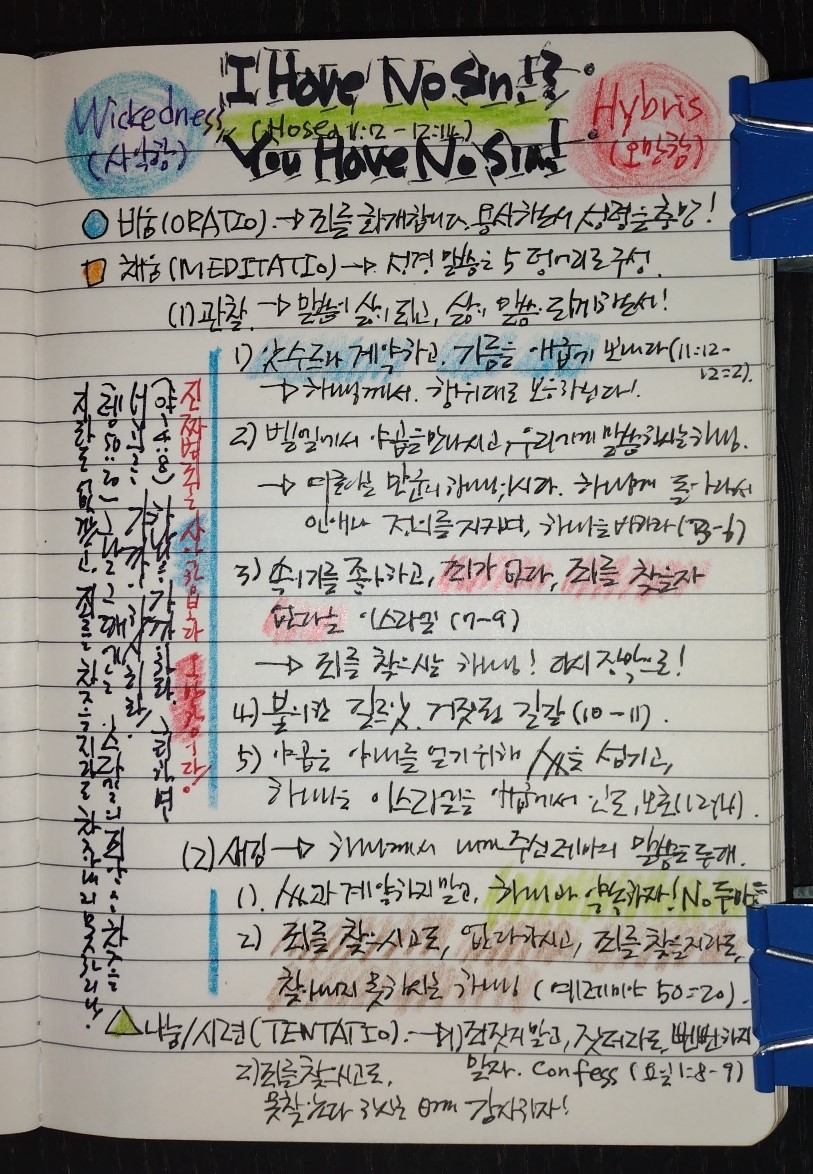 I Have No Sin!?
(Hosea 11:12 - 12:14)
You Have No Sin!
Wickedness
(사악함)
Hybris
(오만함)
비움(ORATIO) → 죄를 회개합니다. 용서하소서 성령을 충만!
채움(MEDITATIO) → 성경 말씀은 5 덩어리로 구성.
(1) 관찰. → 말씀이 삶이 되고, 삶이 말씀 되게 하소서!
1) 앗수르와 계약하고, 기름을 애굽에 보내다(11:12-12:2).
→ 하나님께서. 행위대로 보응하신다!
2) 벧엘에서 야곱을 만나시고, 우리에게 말씀하시는 하나님.
→ 여호와는 만군의 하나님이시다. 하나님께 돌아와서
인애와 정의를 지키며, 하나님을 바라라 (3-6)
3) 속이기를 좋아하고, 죄가 없다, 죄를 찾을자
없다는 이스라엘 (7-9)
→ 죄를 찾으시는 하나님! 다시 장막으로!
4) 불의한 길르앗. 거짓된 길갈 (10-11).
5) 야곱은 아내를 얻기 위해 사람을 섬기고,
하나님은 이스라엘을 애굽에서 인도, 보호(12-14).
진짜 범죄는 사악함과 오만함이다!
(약 4:8) 하나님을 가까이하라. 그리하면
너희를 가까이하시리라!
(렘 50:20) 그날 그때에는 이스라엘의 죄악을 찾을
지라도 없겠고, 죄를 찾을지라도 찾아내지 못하리니!
(2) 새김 → 하나님께서 내게 주신 레마의 말씀은 두개.
1). 사람과 계약하지 말고, 하나님과 약속하자! No 두마음
2) 죄를 찾으시고도, 없다 하시고, 죄를 찾을지라도,
찾아내지 못하시는 하나님 (예레미야 50:20).
나눔/시련(TENTATIO). → 1) 적 짓지 말고, 짓더라도, 뻔뻔하지
말자. Confess (요일 1:8-9)
2) 죄를 찾으시고도,
못찾는다 하시는 은혜 감사하자!